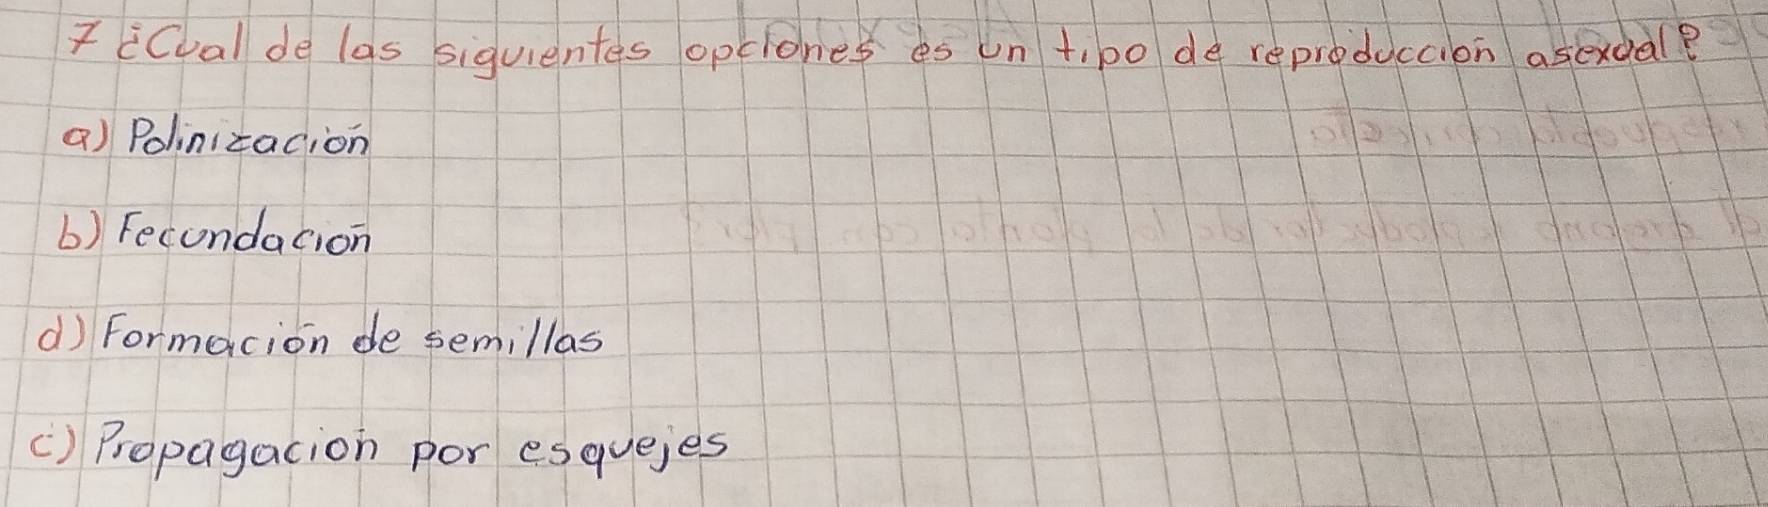 7 ¿Cual de las siguientes opciones es un tipo de reproduccion asexual?
a) Polinización
b) Fecundación
d) Formación de semillas
c) Propagacion por esquejes